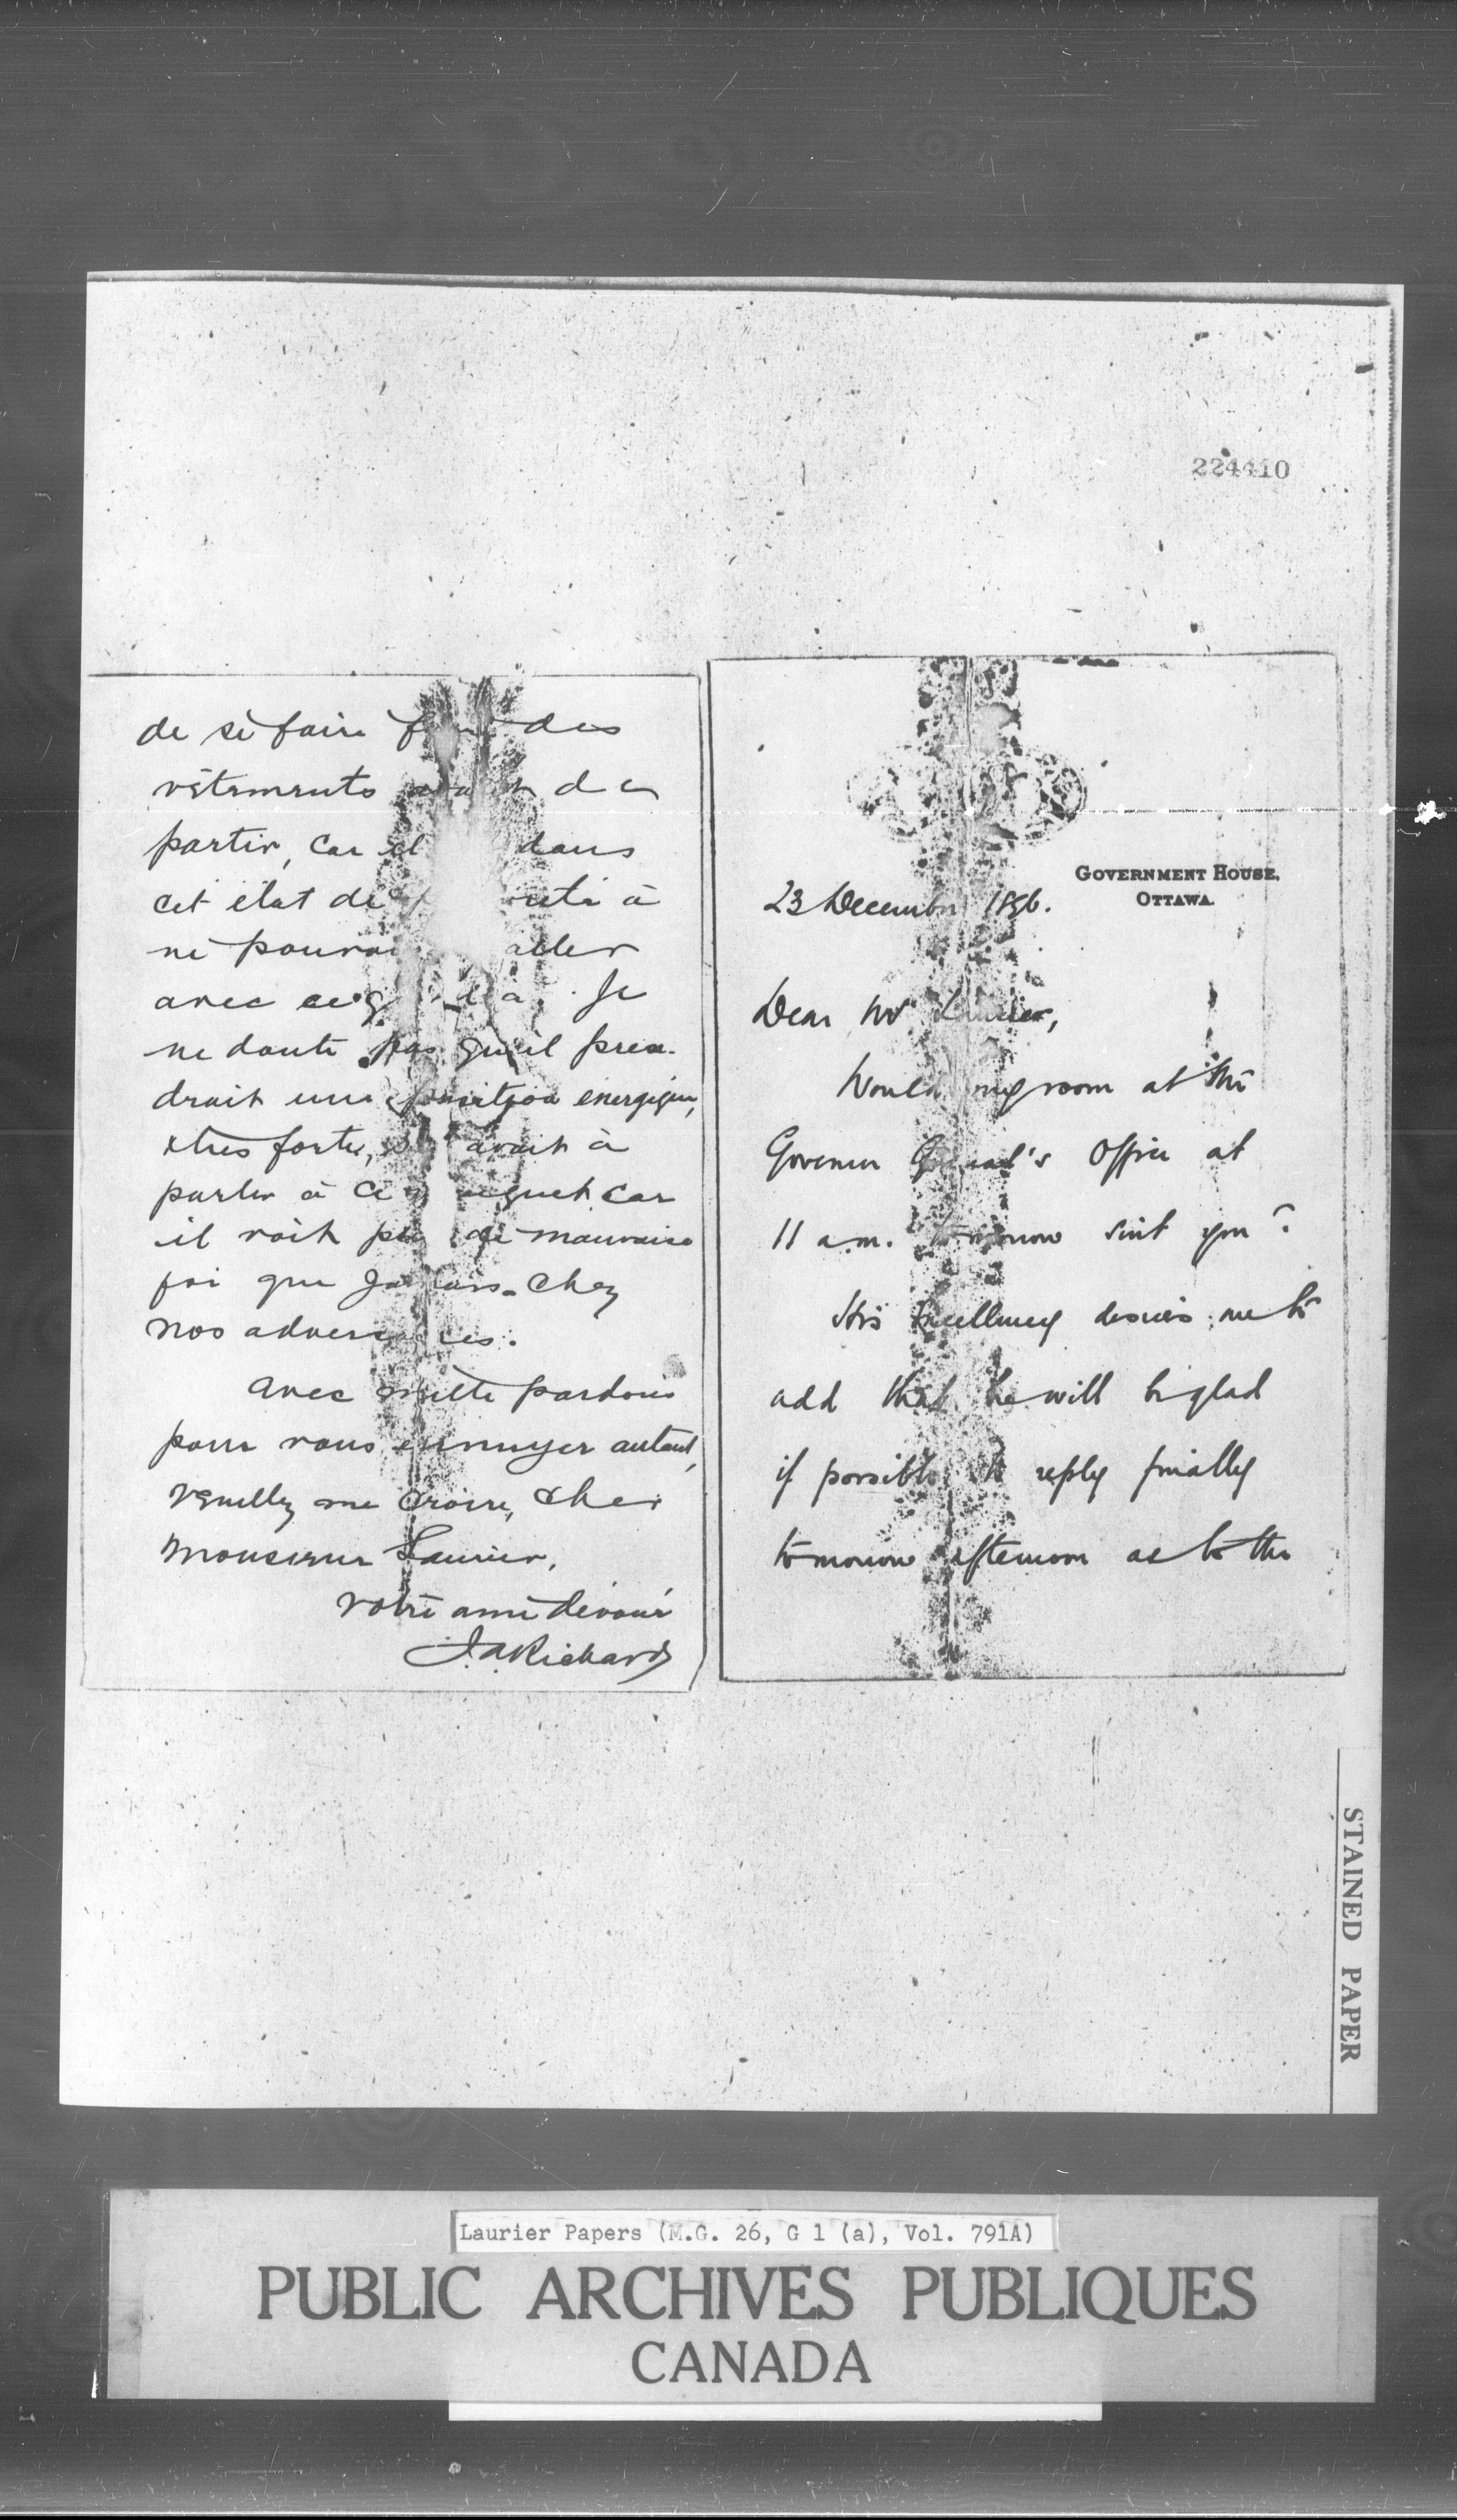 224410
de se faire des
vêtements de
partir, car il dans
cet état de à
ne aller
avec Je
ne doute pas qu'il pren-
drait une position énergique,
très forte, avait à
parler à ce car
il voit de mauvaise
foi que jamais chez
nos adversaires.
Avec mille pardons
pour vous ennuyer autant,
veuillez me croire, cher
Monsieur Laurier,
votre ami dévoué
J.A Richard
GOVERNMENT HOUSE,
OTTAWA.
23 December 1896.
Dear Mr Laurier,
Would my room at the
Governor General's Office at
11 a.m. tomorrow suit you?
His Excellency desires me to
add that he will be glad
if possible to reply finally
tomorrow afternoon as to the
STAINED PAPER
Laurier Papers (M.G. 26, G 1 (a), Vol. 791A)
PUBLIC ARCHIVES PUBLIQUES
CANADA